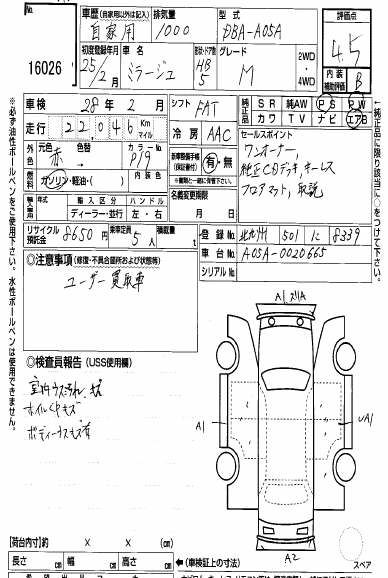 16026
車歴(自家用以外は記入) 自家用
排気量 1000
型式 DBA-A05A
評価点 4.5
初度登録年月 25/2月
車名 ミラージュ
形状・ドア数 HB 5
グレード M
2WD・4WD
内装 補助評価 B
車検 28年2月
シフト FAT
純正品 SR 純AW PS PW
カワ TV ナビ エアB
走行 22,046 Km マイル
冷房 AAC
セールスポイント
ワンオーナー、
純正CDデッキ、キーレス
フロアマット、取説
元色 赤 色替
カラーNo. P19
新車整備手帳(保証書付) 有・無
※書類と一緒に保管下さい。
燃料 ガソリン・軽油・( )
内装色
名義変更期限 月 日
輸入車 年式 輸入区分 ハンドル
ディーラー・並行 左・右
リサイクル預託金 8650円
乗車定員 5人
積載量 t
登録No. 北九州 501 に 8339
車台No. A05A-0020665
シリアルNo.
◎注意事項(修復・不具合箇所および状態等)
ユーザー買取車
◎検査員報告(USS使用欄)
ホイルCPキズ
ボディーウスキズ有
A1
A1
UA1
A2
スペア
【荷台内寸】約 × ×
長さ cm 幅 cm 高さ cm
←(車検証上の寸法)
※必ず油性ボールペンをご使用下さい。水性ボールペンは使用できません。